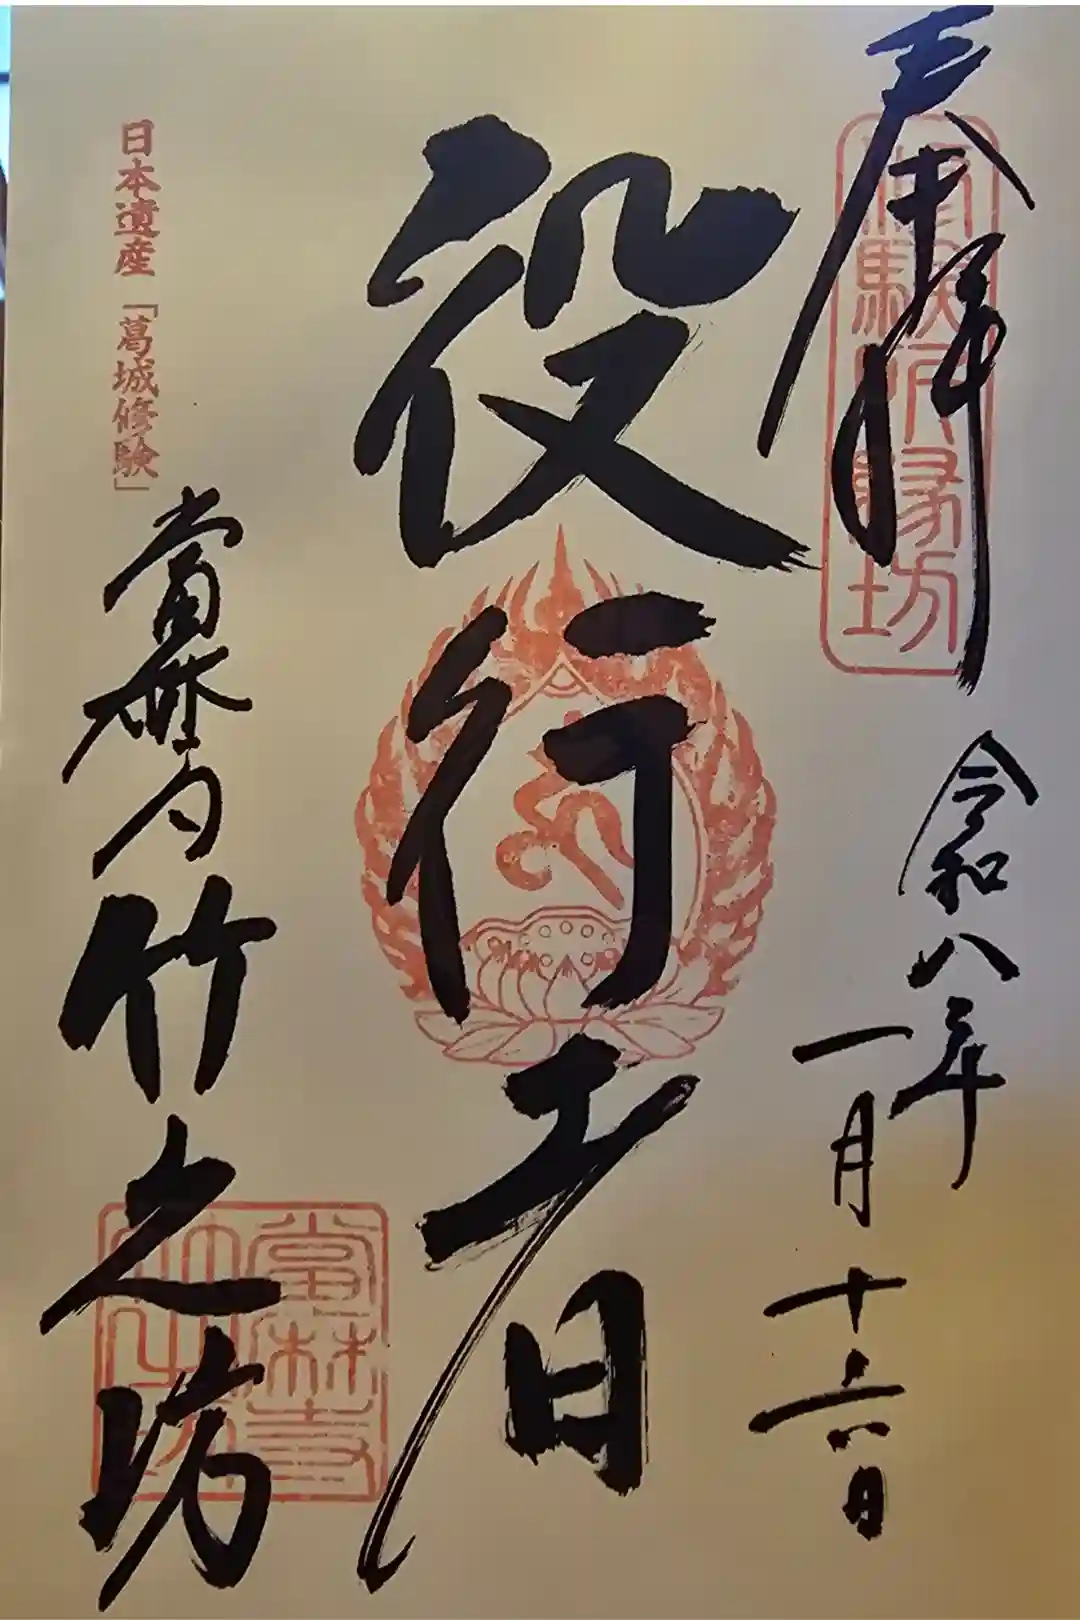 奉拝
令和八年
一月十六日
役行者
日本遺産「葛城修験」
當麻寺竹之坊
當麻寺
竹之坊